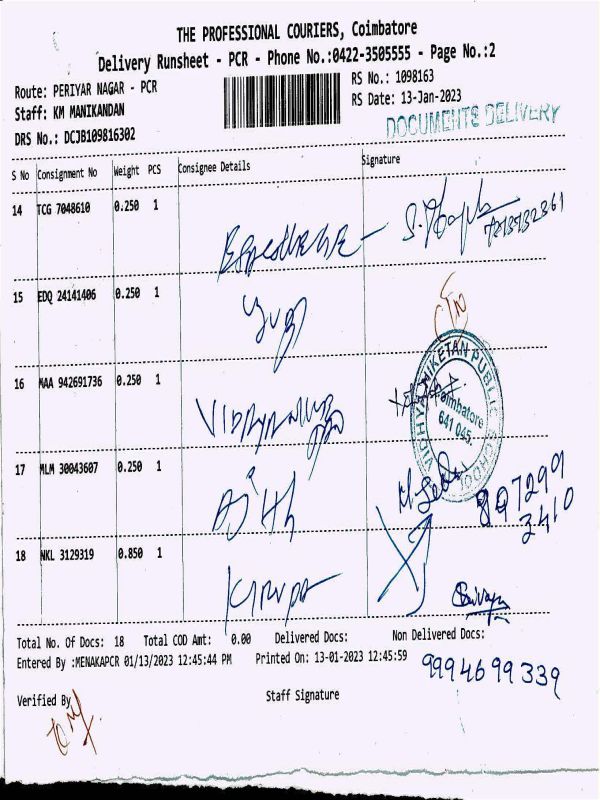 THE PROFESSIONAL COURIERS, Coimbatore
Delivery Runsheet - PCR - Phone No.:0422-3505555 - Page No.:2
Route: PERIYAR NAGAR - PCR
RS No.: 1098163
Staff: KM MANIKANDAN
RS Date: 13-Jan-2023
DRS No.: DCJB109816302
DOCUMENTS DELIVERY
S No Consignment No Weight PCS Consignee Details Signature
14 TCG 7048610 0.250 1
15 EDQ 24141406 0.250 1
16 MAA 942691736 0.250 1
VIDHYA NIKETAN PUBLIC SCHOOL
Coimbatore
641 045.
17 MLM 30043607 0.250 1 Ajith
897299
3410
18 NKL 3129319 0.850 1
Total No. Of Docs: 18 Total COD Amt: 0.00 Delivered Docs: Non Delivered Docs:
Entered By :MENAKAPCR 01/13/2023 12:45:44 PM Printed On: 13-01-2023 12:45:59
9994699339
Verified By Staff Signature